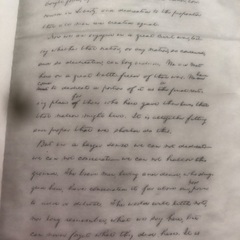 dedicated to the proposition
that all men are created equal.
Now we are engaged in a great civil war, testing
whether that nation, or any nation, so conceived,
and so dedicated, can long endure. We are met
here on a great battle-field of that war. We have
come to dedicate a portion of it as the final rest-
ing place of those who here gave their lives that
that nation might live. It is altogether fitting
and proper that we should do this.
But in a larger sense we can not dedicate
we can not consecrate we can not hallow this
ground. The brave men, living and dead, who strug-
gled here, have consecrated it far above our poor
The world will little note,
nor long remember, what we say here, but
can never forget what they did here. It is